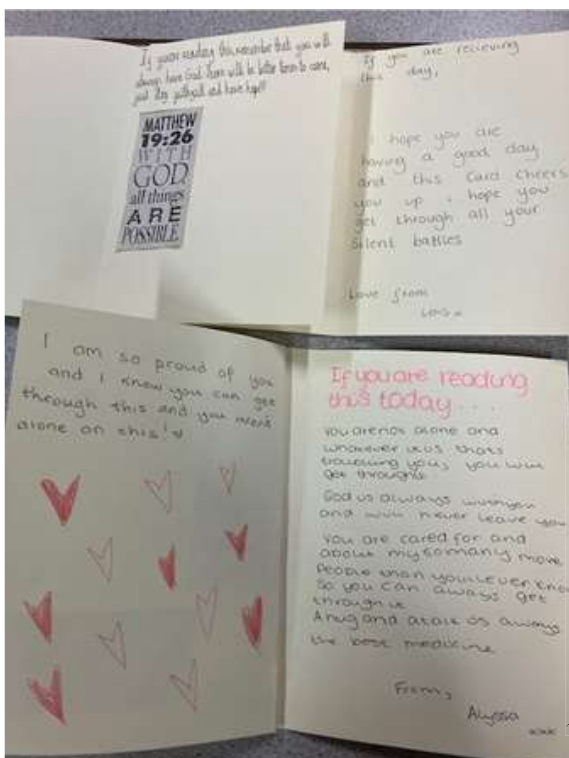 If you're reading this remember that you will
always have God. There will be better times to come,
just stay and have hope!!
MATTHEW
19:26
WITH
GOD
all things
ARE
POSSIBLE
If you are recieving
this day,
I hope you are
having a good day
and this card cheers
you up i hope you
get through all your
silent battles
Love from
I am so proud of you
and I know you can get
through this and you aren't
alone on this!
If you are reading
this today...
You are not alone and
whatever it is thats
you, you will
get through it.
God is always with you
and will never leave you
You are cared for and
about my so many more
people than you'll ever know
So you can always get
through it
A hug and a talk is always
the best medicine
From,
Alyssa